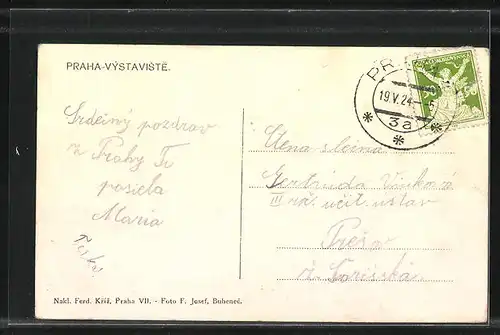 PRAHA-VÝSTAVIŠTĚ.
PR
19.V.24
3a
Srdečný pozdrav
z Prahy Ti
posílá
Maria
Ctěná slečna
Gertruda
III roč. učit. ustav
Nakl. Ferd. Kříž, Praha VII. - Foto F. Josef, Bubeneč.